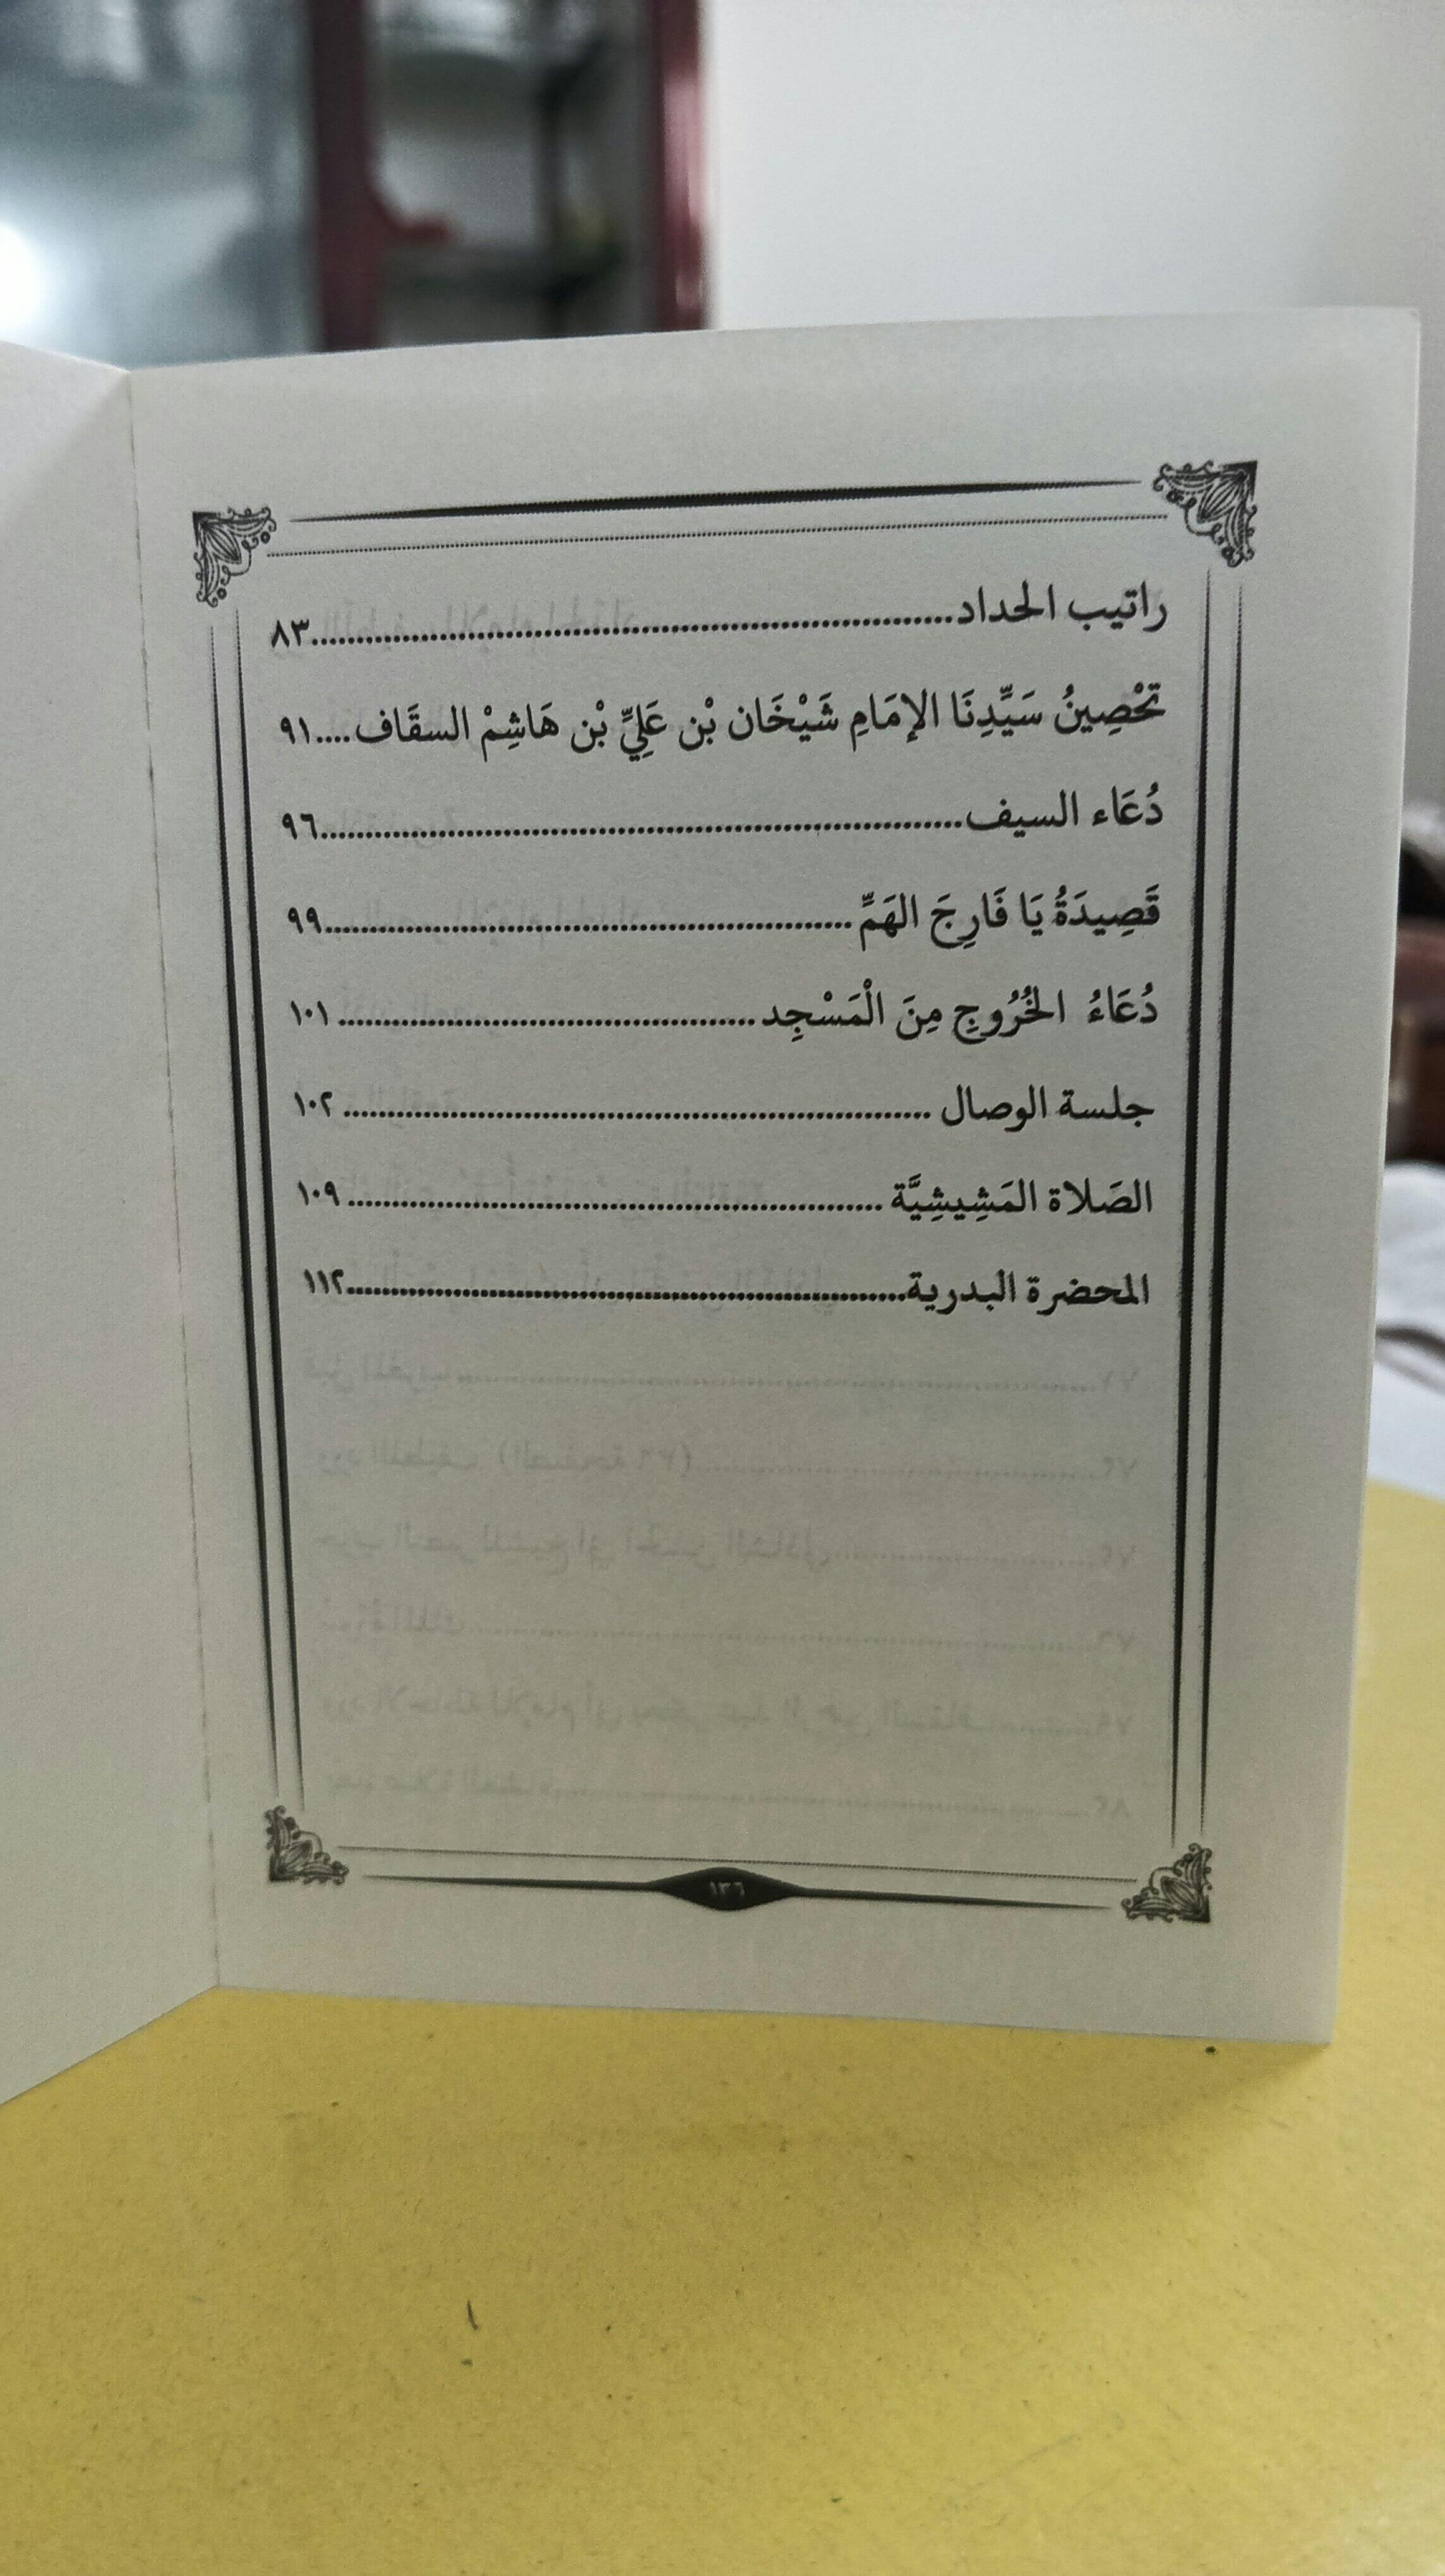 راتيب الحداد................................................................٨٣
تحْصِينُ سَيِّدِنَا الإمَامِ شَيْخَان بْن عَلِيِّ بْن هَاشِمْ السقَاف....٩١
دُعَاء السيف................................................................٩٦
قَصِيدَةُ يَا فَارِجَ الهَمِّ.....................................................٩٩
دُعَاءُ الخُرُوجِ مِنَ الْمَسْجِد..........................................١٠١
جلسة الوصال ...........................................................١٠٢
الصَلاة المَشِيشِيَّة ......................................................١٠٩
المحضرة البدرية.........................................................١١٢
١٣٦